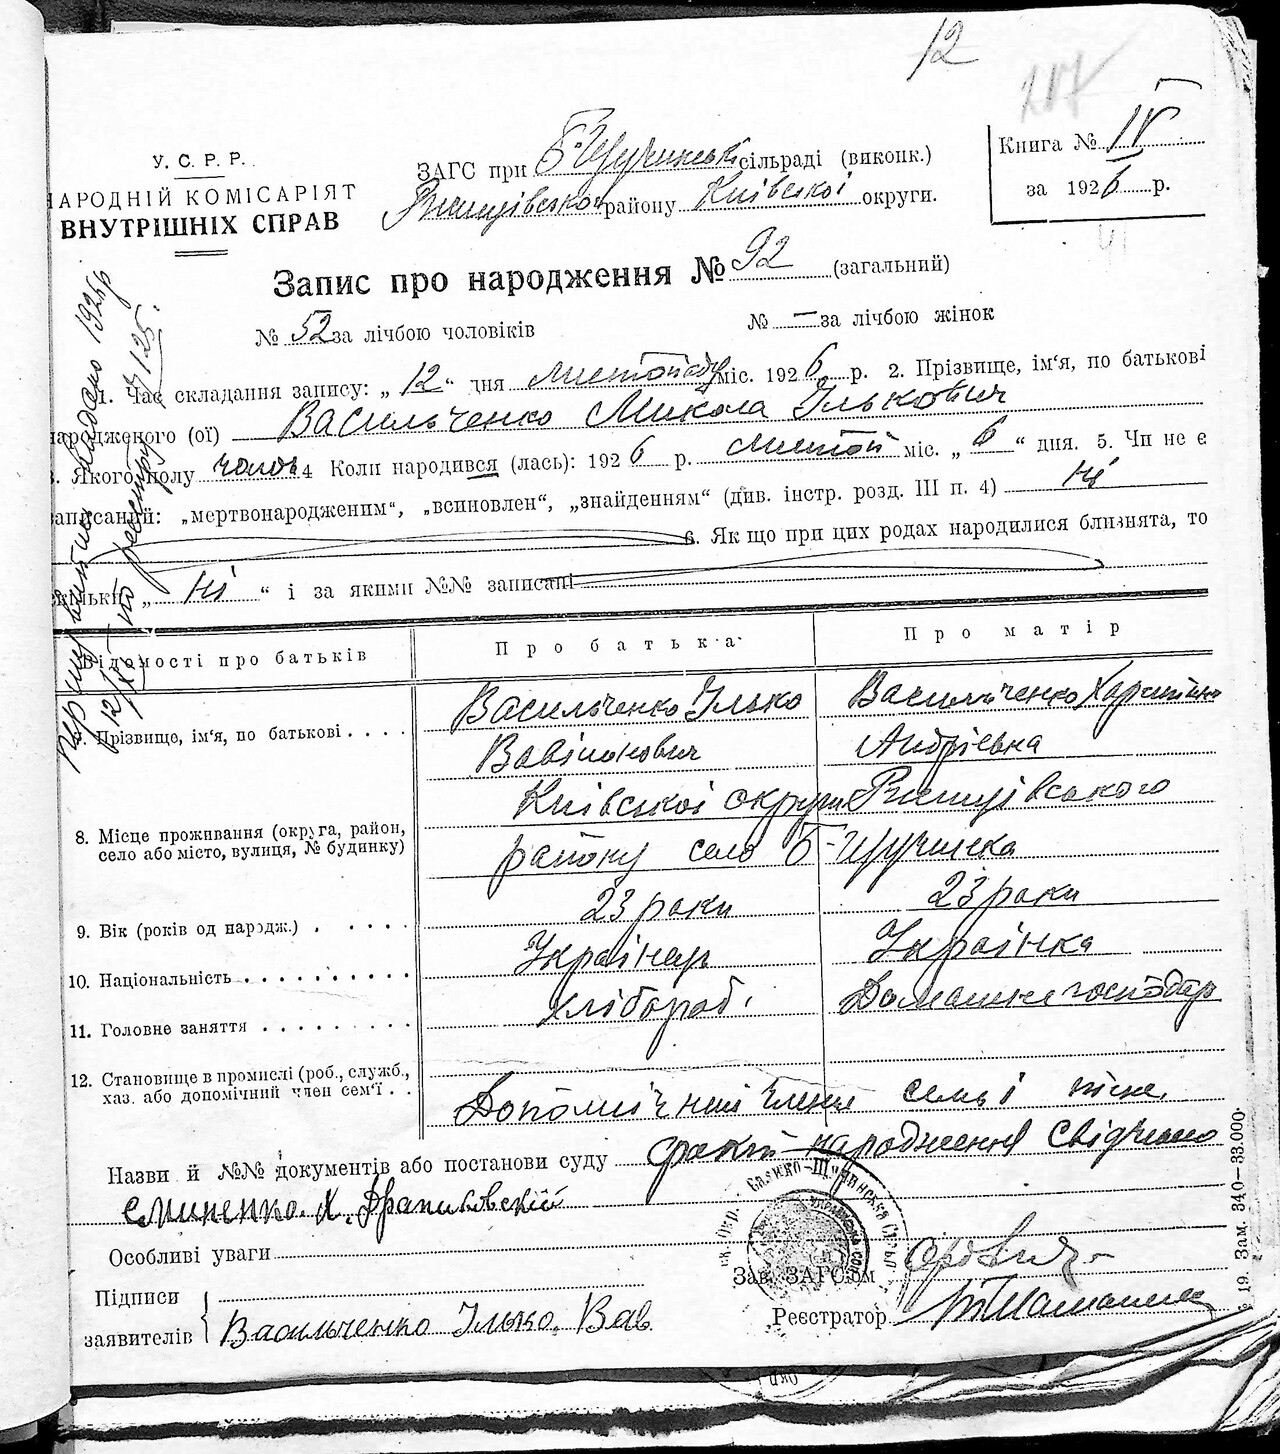 12
217
У. С. Р. Р.
НАРОДНІЙ КОМІСАРІЯТ
ВНУТРІШНІХ СПРАВ
ЗАГС при Б-Щучинські сільраді (виконк.)
Ржищівської району Київської округи.
Книга № IV
за 1926 р.
Запис про народження № 92 (загальний)
№ 52 за лічбою чоловіків
№ — за лічбою жінок
1. Час складання запису: „12“ дня листопаду міс. 1926 р. 2. Прізвище, ім'я, по батькові
народженого (ої) Васильченко Микола Ількович
3. Якого полу чолов 4 Коли народився (лась): 1926 р. листоп міс. „6“ дня. 5. Чи не є
записаний: „мертвонародженим“, „всиновлен“, „знайденням“ (див. інстр. розд. III п. 4) ні
6. Як що при цих родах народилися близнята, то
скільки „ні“ і за якими №№ записані
Відомості про батьків
Про батька
Про матір
7. Прізвище, ім'я, по батькові
Васильченко Ілько
Васильченко
Вавілонович
Андріевна
8. Місце проживання (округа, район,
село або місто, вулиця, № будинку)
Київської округи Ржищівського
району село Б-Щучинка
9. Вік (років од народж.)
23 роки
23 роки
10. Національність
Українець
Українка
11. Головне заняття
Хлібороб.
Домашнє господар
12. Становище в промислі (роб., служб.,
хаз. або допомічний член сем'ї
Допомічний члени семьі
Назви й №№ документів або постанови суду факт народження свідчило
Особливі уваги
Зав. ЗАГС'ом
Підписи
заявителів
Васильченко Ілько. Вав
Реєстратор
19. Зам. 340—33.000.
Першу видано 1926р
12/XI по реєстру
№ 125.